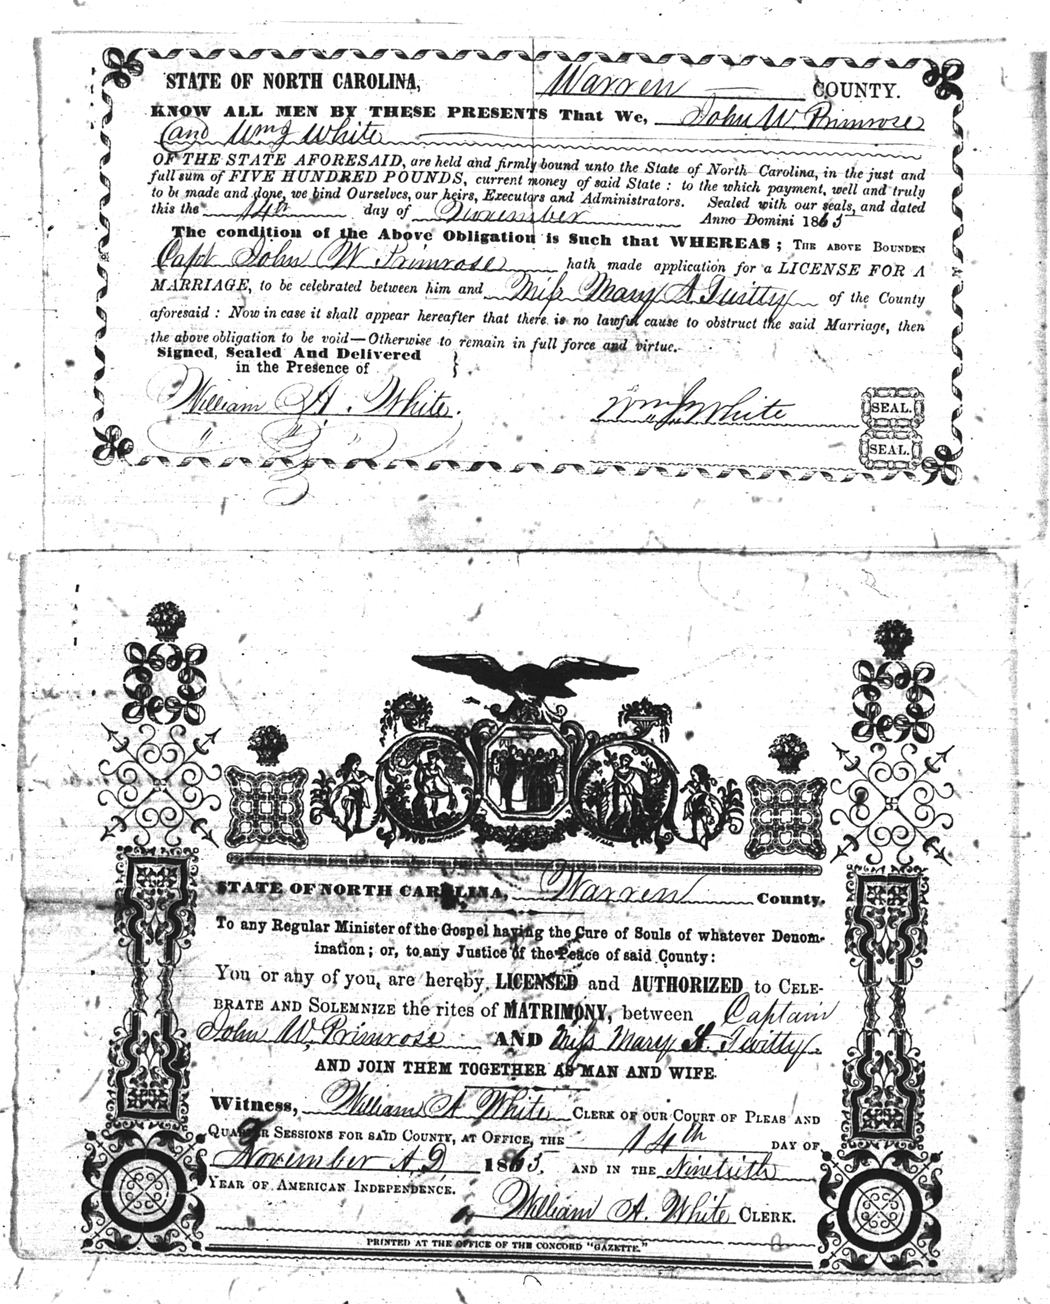 STATE OF NORTH CAROLINA, Warren COUNTY.
KNOW ALL MEN BY THESE PRESENTS That We, John W. Primrose
and Wm J White
OF THE STATE AFORESAID, are held and firmly bound unto the State of North Carolina, in the just and
full sum of FIVE HUNDRED POUNDS, current money of said State : to the which payment, well and truly
to be made and done, we bind Ourselves, our heirs, Executors and Administrators. Sealed with our seals, and dated
this the 14th day of November Anno Domini 1865
The condition of the Above Obligation is Such that WHEREAS ; THE ABOVE BOUNDEN
Capt John W Primrose hath made application for a LICENSE FOR A
MARRIAGE, to be celebrated between him and Miss Mary A Twitty of the County
aforesaid : Now in case it shall appear hereafter that there is no lawful cause to obstruct the said Marriage, then
the above obligation to be void—Otherwise to remain in full force and virtue.
Signed, Sealed And Delivered
in the Presence of }
William A. White. Wm J White SEAL.
SEAL.
STATE OF NORTH CAROLINA, Warren County.
To any Regular Minister of the Gospel having the Cure of Souls of whatever Denom-
ination ; or, to any Justice of the Peace of said County:
You or any of you, are hereby LICENSED and AUTHORIZED to CELE-
BRATE AND SOLEMNIZE the rites of MATRIMONY, between Captain
John W. Primrose AND Miss Mary A. Twitty.
AND JOIN THEM TOGETHER AS MAN AND WIFE.
Witness, William A White CLERK OF OUR COURT OF PLEAS AND
QUARTER SESSIONS FOR SAID COUNTY, AT OFFICE, THE 14th DAY OF
November A.D. 1865. AND IN THE Ninetieth
YEAR OF AMERICAN INDEPENDENCE.
William A. White CLERK.
PRINTED AT THE OFFICE OF THE CONCORD "GAZETTE."